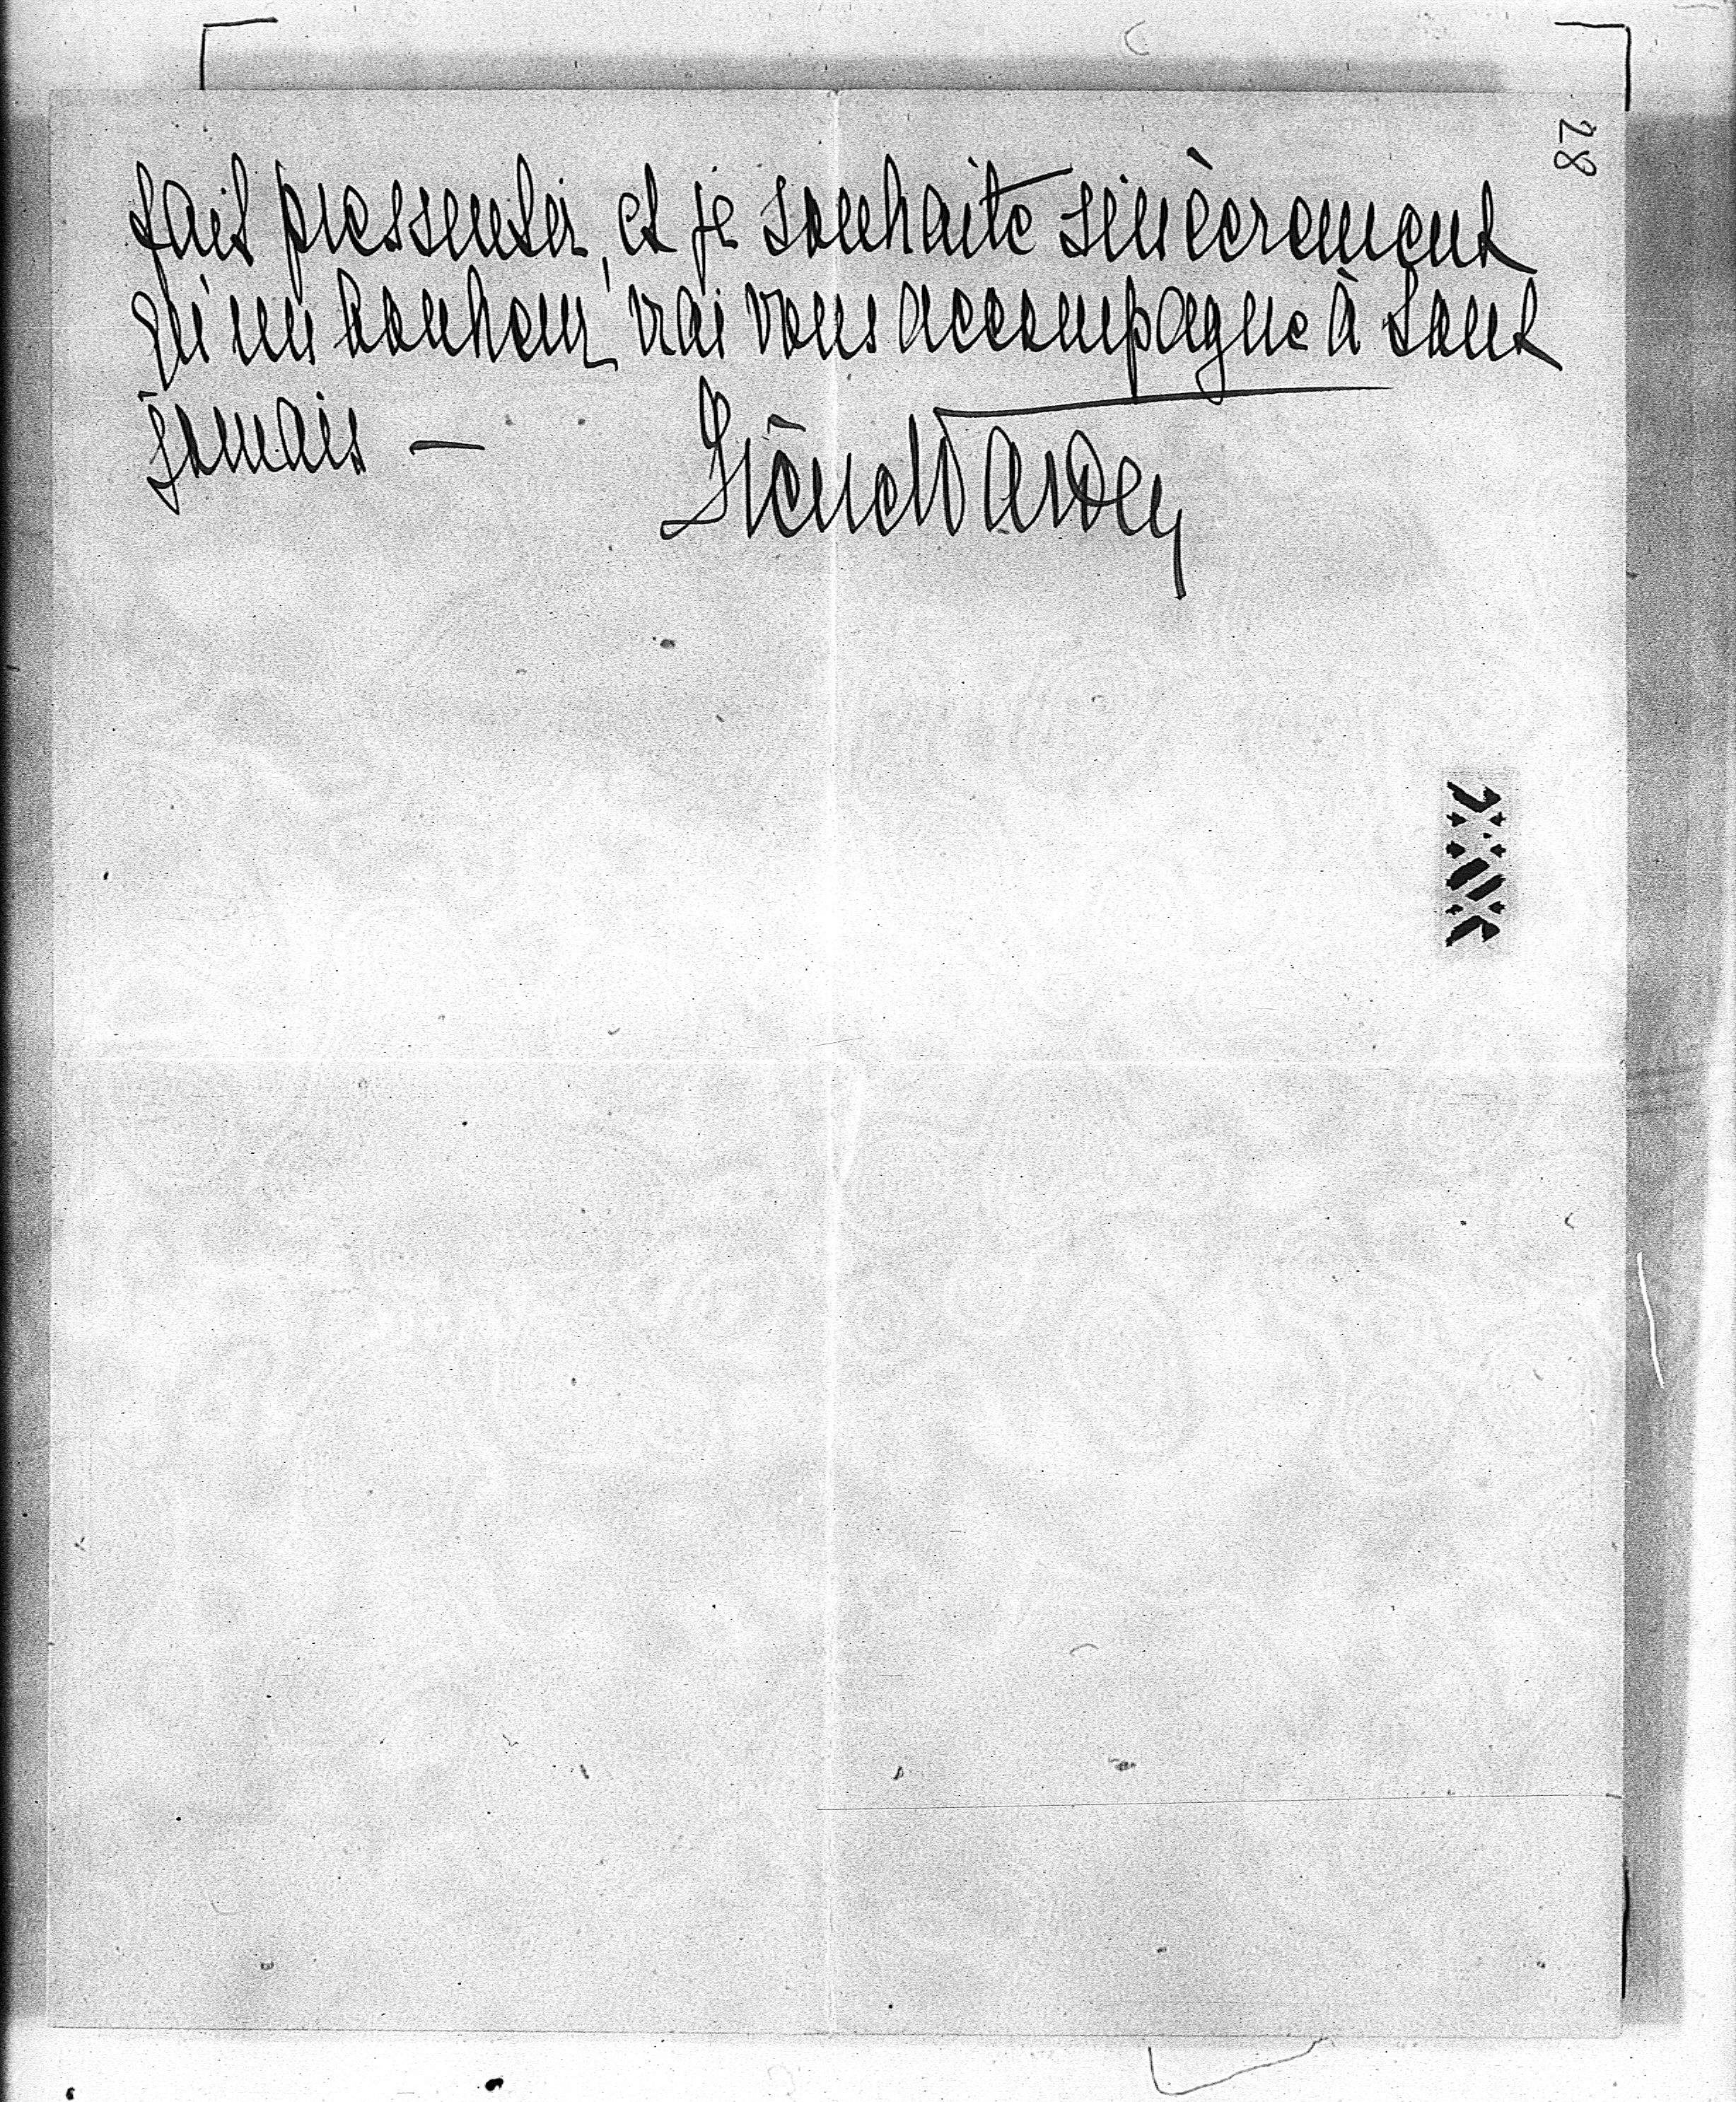 28
fait pressentir, et je souhaite sincèrement
qu'un bonheur vrai vous accompagne à tout
jamais —
Irène Warden